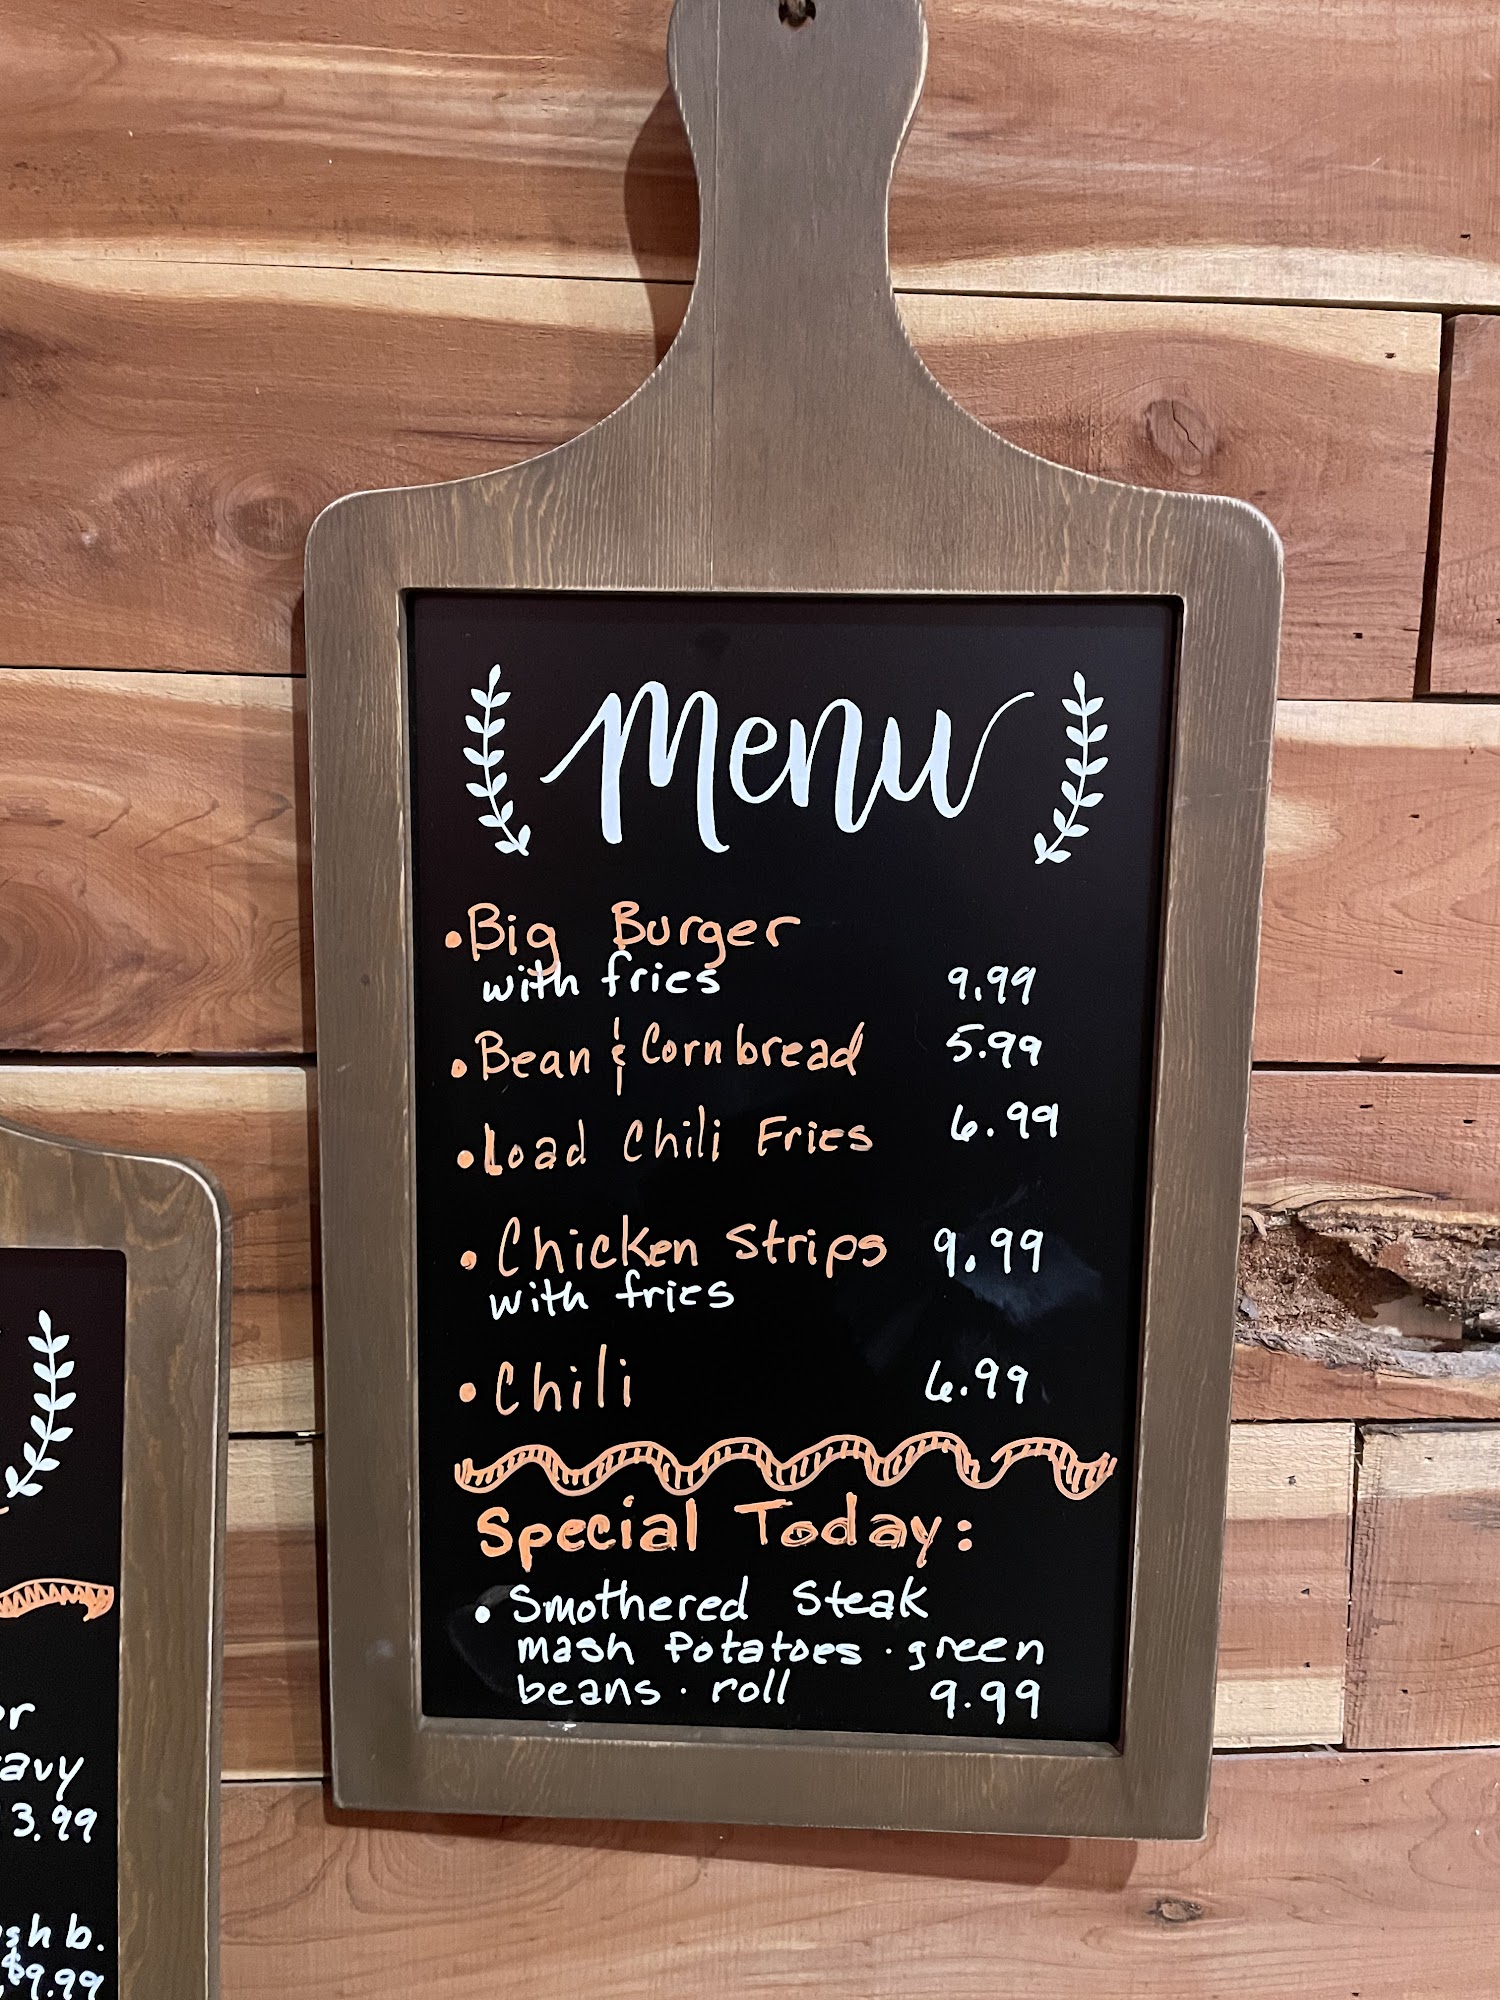 Menu
• Big Burger
with fries 9.99
• Bean & Cornbread 5.99
• Load Chili Fries 6.99
• Chicken Strips 9.99
with fries
• Chili 6.99
Special Today:
• Smothered Steak
mash Potatoes · green
beans · roll 9.99
3.99
b.
$9.99